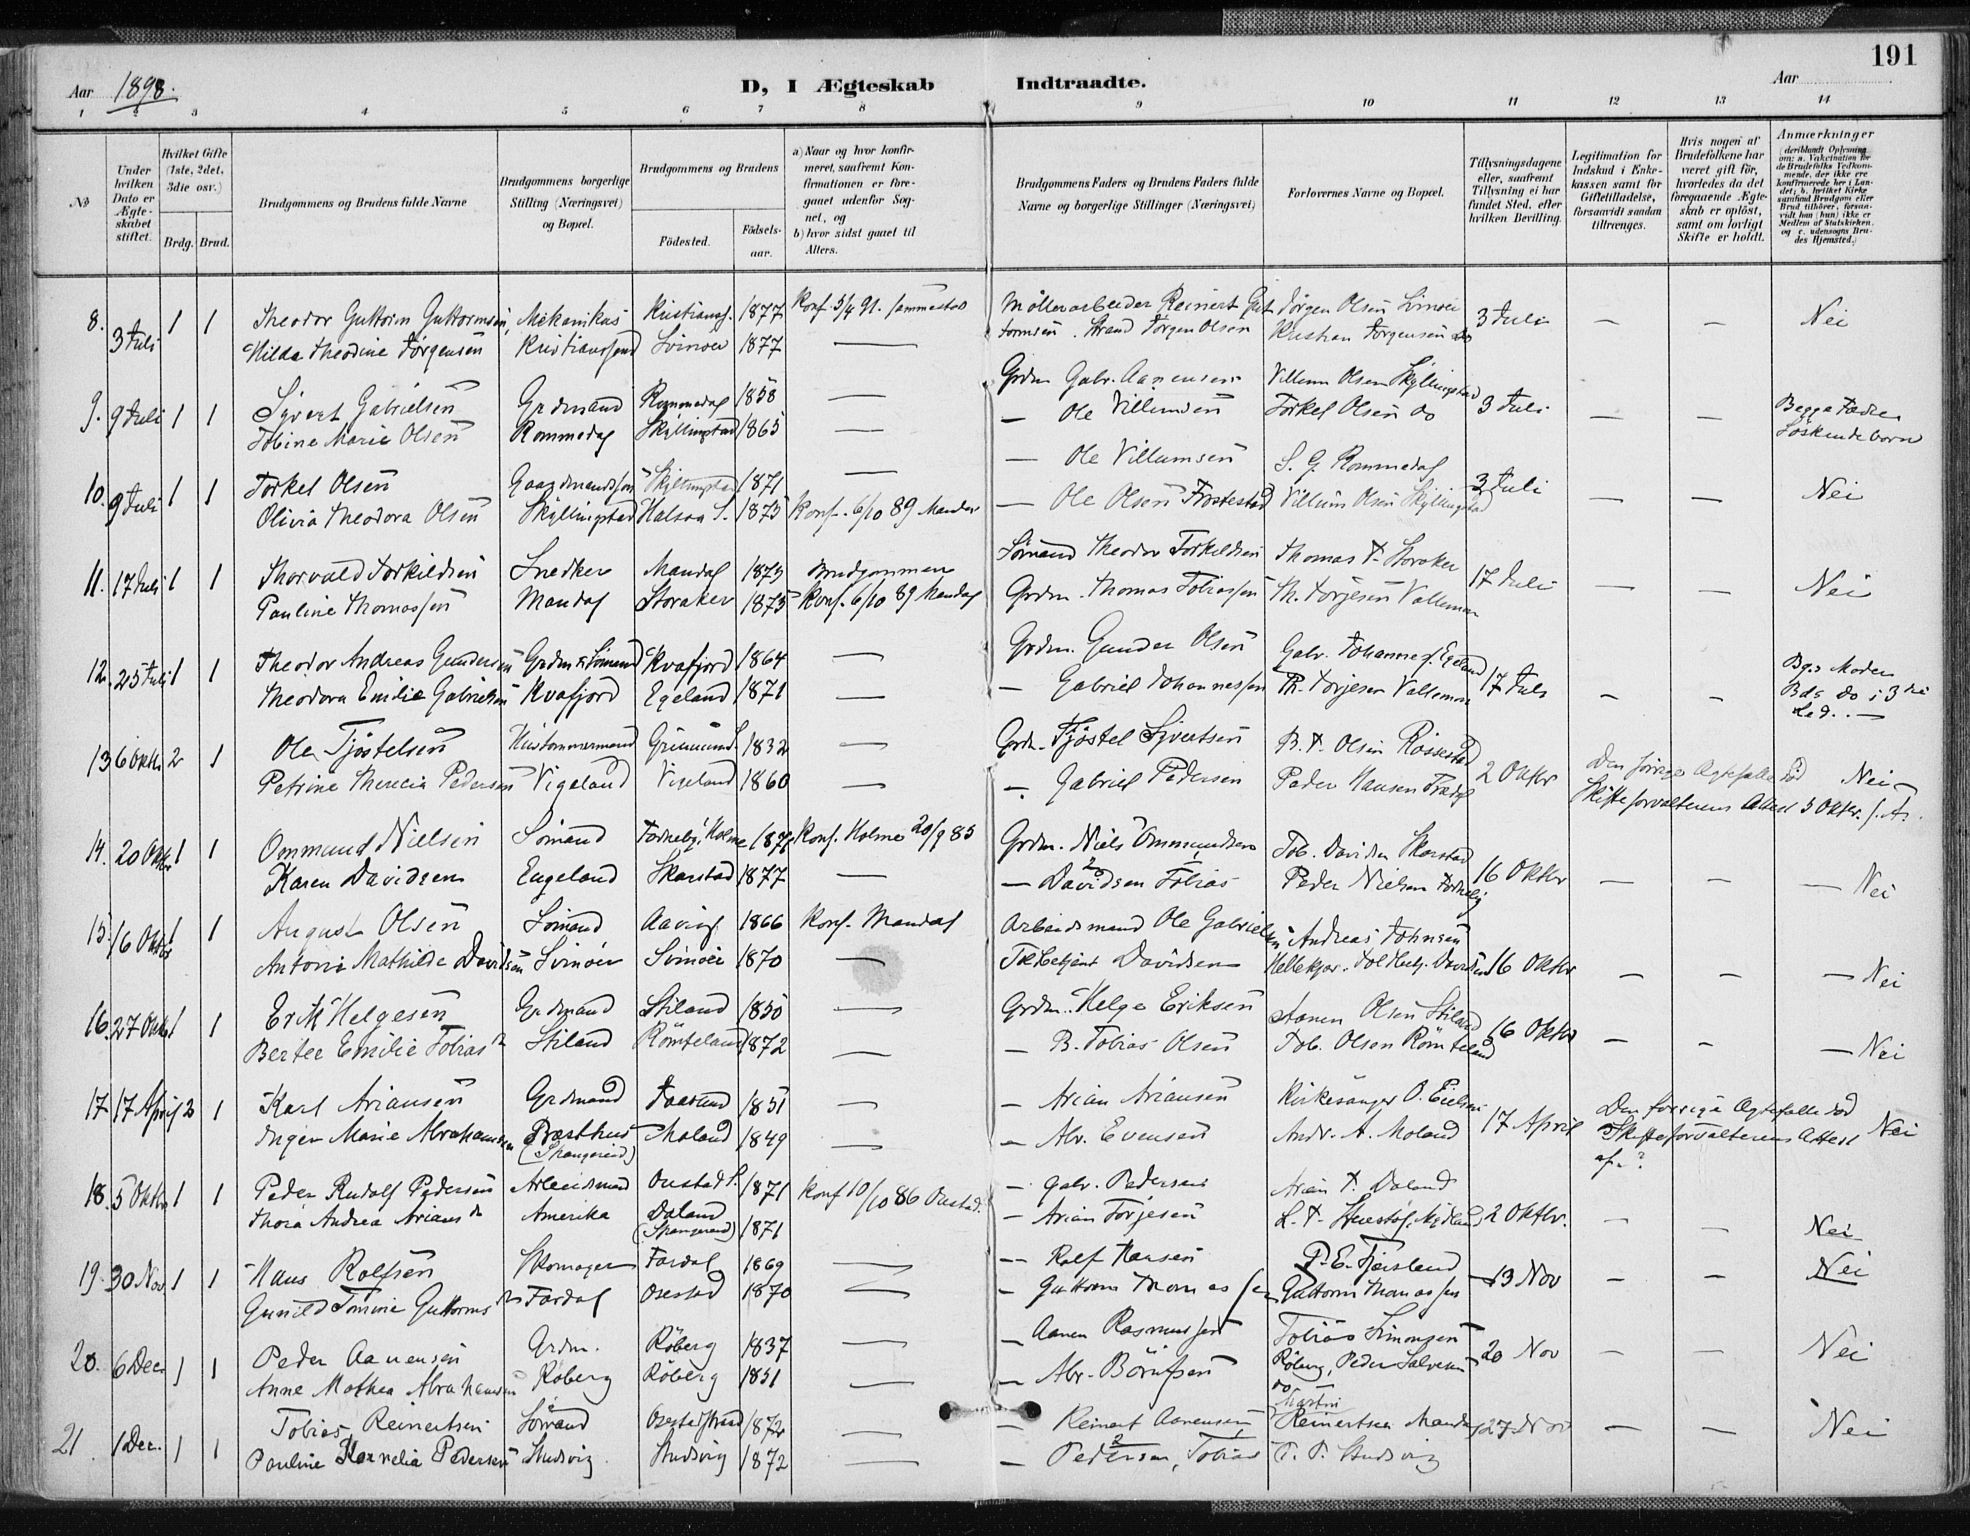 191
Aar 1898. D, I Ægteskab Indtraadte. Aar
1 2 3 4 5 6 7 8 9 10 11 12 13 14
No
Under hvilken Dato er Ægteskabet stiftet.
Hvilket Gifte (1ste, 2det, 3die osv.)
Brdg. Brud.
Brudgommens og Brudens fulde Navne
Brudgommens borgerlige Stilling (Næringsvei) og Bopæl.
Brudgommens og Brudens
Fødested.
Fødselsaar.
a) Naar og hvor konfirmeret, saafremt Konfirmationen er foregaaet udenfor Sognet, og
b) hvor sidst gaaet til Alters.
Brudgommens Faders og Brudens Faders fulde Navne og borgerlige Stillinger (Næringsvei)
Forlovernes Navne og Bopæl.
Tillysningsdagene eller, saafremt Tillysning ei har fundet Sted, efter hvilken Bevilling.
Legitimation for Indskud i Enkekassen samt for Giftetilladelse, forsaavidt saadan tiltrænges.
Hvis nogen af Brudefolkene har været gift før, hvorledes da det foregaaende Ægteskab er opløst, samt om lovligt Skifte er holdt.
Anmærkninger (deriblandt Oplysning om: a. Vakcination for de Brudefolks Vedkommende, der ikke ere konfirmerede her i Landet; b. hvilket Kirkesamfund Brudgom eller Brud tilhører, forsaavidt han (hun) ikke er Medlem af Statskirken, og c. udensogns Brudes Hjemsted.)
8. 3 Juli 1 1 Theodor Guttorm Guttormsen, Mekanikus Kristians. 1877 Konf. 5/4 91. sammesteds Møllerarbeider Reinert Gut Jørgen Olsen Svinøi 3 Juli — — Nei
Hilda Theodine Jørgensen Kristianssand Svinøer 1877 — tormsen. Strand Jørgen Olsen Kristian Jørgensen do
9. 9 Juli 1 1 Syvert Gabrielsen Grdmand Rommedal 1858 — Grdm Gabr. Aanensen Villum Olsen Skyllingstad 3 Juli — — Begge Fædre
Tobine Marie Olsen Rommedal Skyllingstad 1865 — — Ole Villumsen Torkel Olsen do Søskendebørn
10. 9 Juli 1 1 Torkel Olsen Gaardmandssøn Skyllingstad 1871 — — Ole Villumsen S. G. Rommedal 3 Juli — — Nei
Olivia Theodora Olsen Skyllingstad Halsaa S. 1873 Konf. 6/10 89 Mandal — Ole Olsen Frøstestad Villum Olsen Skyllingstad
11. 17 Juli 1 1 Thorvald Torkildsen Snedker Mandal 1873 Brudgommen Sømand Theodor Torkildsen Thomas T. Storaker 17 Juli — — Nei
Pauline Thomassen Mandal Storaker 1875 Konf. 6/10 89 Mandal Grdm. Thomas Tobiassen Th. Torjesen Vallemon
12. 25 Juli 1 1 Theodor Andreas Gundersen Grdm & Sømand Kvafjord 1864 — Grdm. Gunder Olsen Gabr. Johannes. Egeland 17 Juli — — Bgs Moder
Theodora Emilie Gabrielsen Kvafjord Egeland 1871 — — Gabriel Johannessen Th. Torjesen Vallemon Bds do i 3die Led. —
13 6 Oktbr 2 1 Ole Tjøstelsen Hustømmermand 1832 — Grdm. Tjøstel Syvertsen B. T. Olsen Røssestad 2 Oktbr Den forrige Ægtefælle død Nei
Petrine Therecia Pedersen Vigeland Vigeland 1860 — — Gabriel Pedersen Peder Hansen Skifteforvalterens Attest 5 Oktbr. f. A.
14. 20 Oktbr 1 1 Ommund Nielsen Sømand Holme Konf. Holme 20/9 85 Grdm. Niels Ommundsen Tob. Davidsen Skarstad 16 Oktbr — — — Nei
Karen Davidsen Engeland Skarstad 1877 — — Davidsen Tobias Peder Nielsen
15. 16 Oktbr 1 1 August Olsen Sømand 1866 Konf. Mandal Arbeidsmand Ole Gabrielsen Andreas Johnsen 16 Oktbr — — — Nei
Antoni Mathilde Davidsen Svinøer Svinøer 1870 — Toldbetjent Davidsen
16. 27 Oktbr 1 1 Erik Helgesen Grdmand Stiland 1850 — Grdm. Helge Eriksen Aanen Olsen Stiland 16 Oktbr — — — Nei
Bertee Emilie Tobias Stiland Rømteland 1872 — — B. Tobias Olsen Tob. Olsen Rømteland
17. 17 April 2 1 Karl Ariansen Grdmand Faasund 1851 — — Arian Ariansen Kirkesanger O. Eielsen 17 April Den forrige Ægtefælle død Nei
Inger Marie Abrahamsen Præsthus (Spangereid) Moland 1849 — — Abr. Evensen Andr. A. Moland Skifteforvalterens Attest af. ?
18. 5 Oktbr 1 1 Peder Rudolf Pedersen Arbeidsmand Oustad S. 1871 Konf 10/10 86 Oustad. — Gabr. Pedersen Arian T. Daland 2 Oktbr. — — Nei
Thora Andrea Arians Amerika Daland (Spangereid) 1871 — Arian Torjesen
19. 30 Nov 1 1 Hans Rolfsen Skomager Fardal 1869 — — Rolf Hansen P. E. Fjersland 13 Nov — — Nei
Gunild Tomine Guttorms Fardal Osestad 1870 — — Guttorm Thomassen Guttorm Thomassen
20. 6 Dec 1 1 Peder Aanensen Grdm. Røberg 1837 — — Aanen Rasmussen Tobias Simonsen 20 Nov — — Nei
Anne Mathea Abrahamsen Røberg Røberg 1851 — — Abr. Børufsen Røberg, Peder Salvesen do
21 1 Dec. 1 1 Tobias Reinertsen Sømand Osestadstrand 1872 — — Reinert Aanensen Martin Reinertsen Mandal 27 Nov — — Nei
Pauline Kornelia Pedersen Stusvig Stusvig 1872 — — Pedersen, Tobias T. P. Stusvig